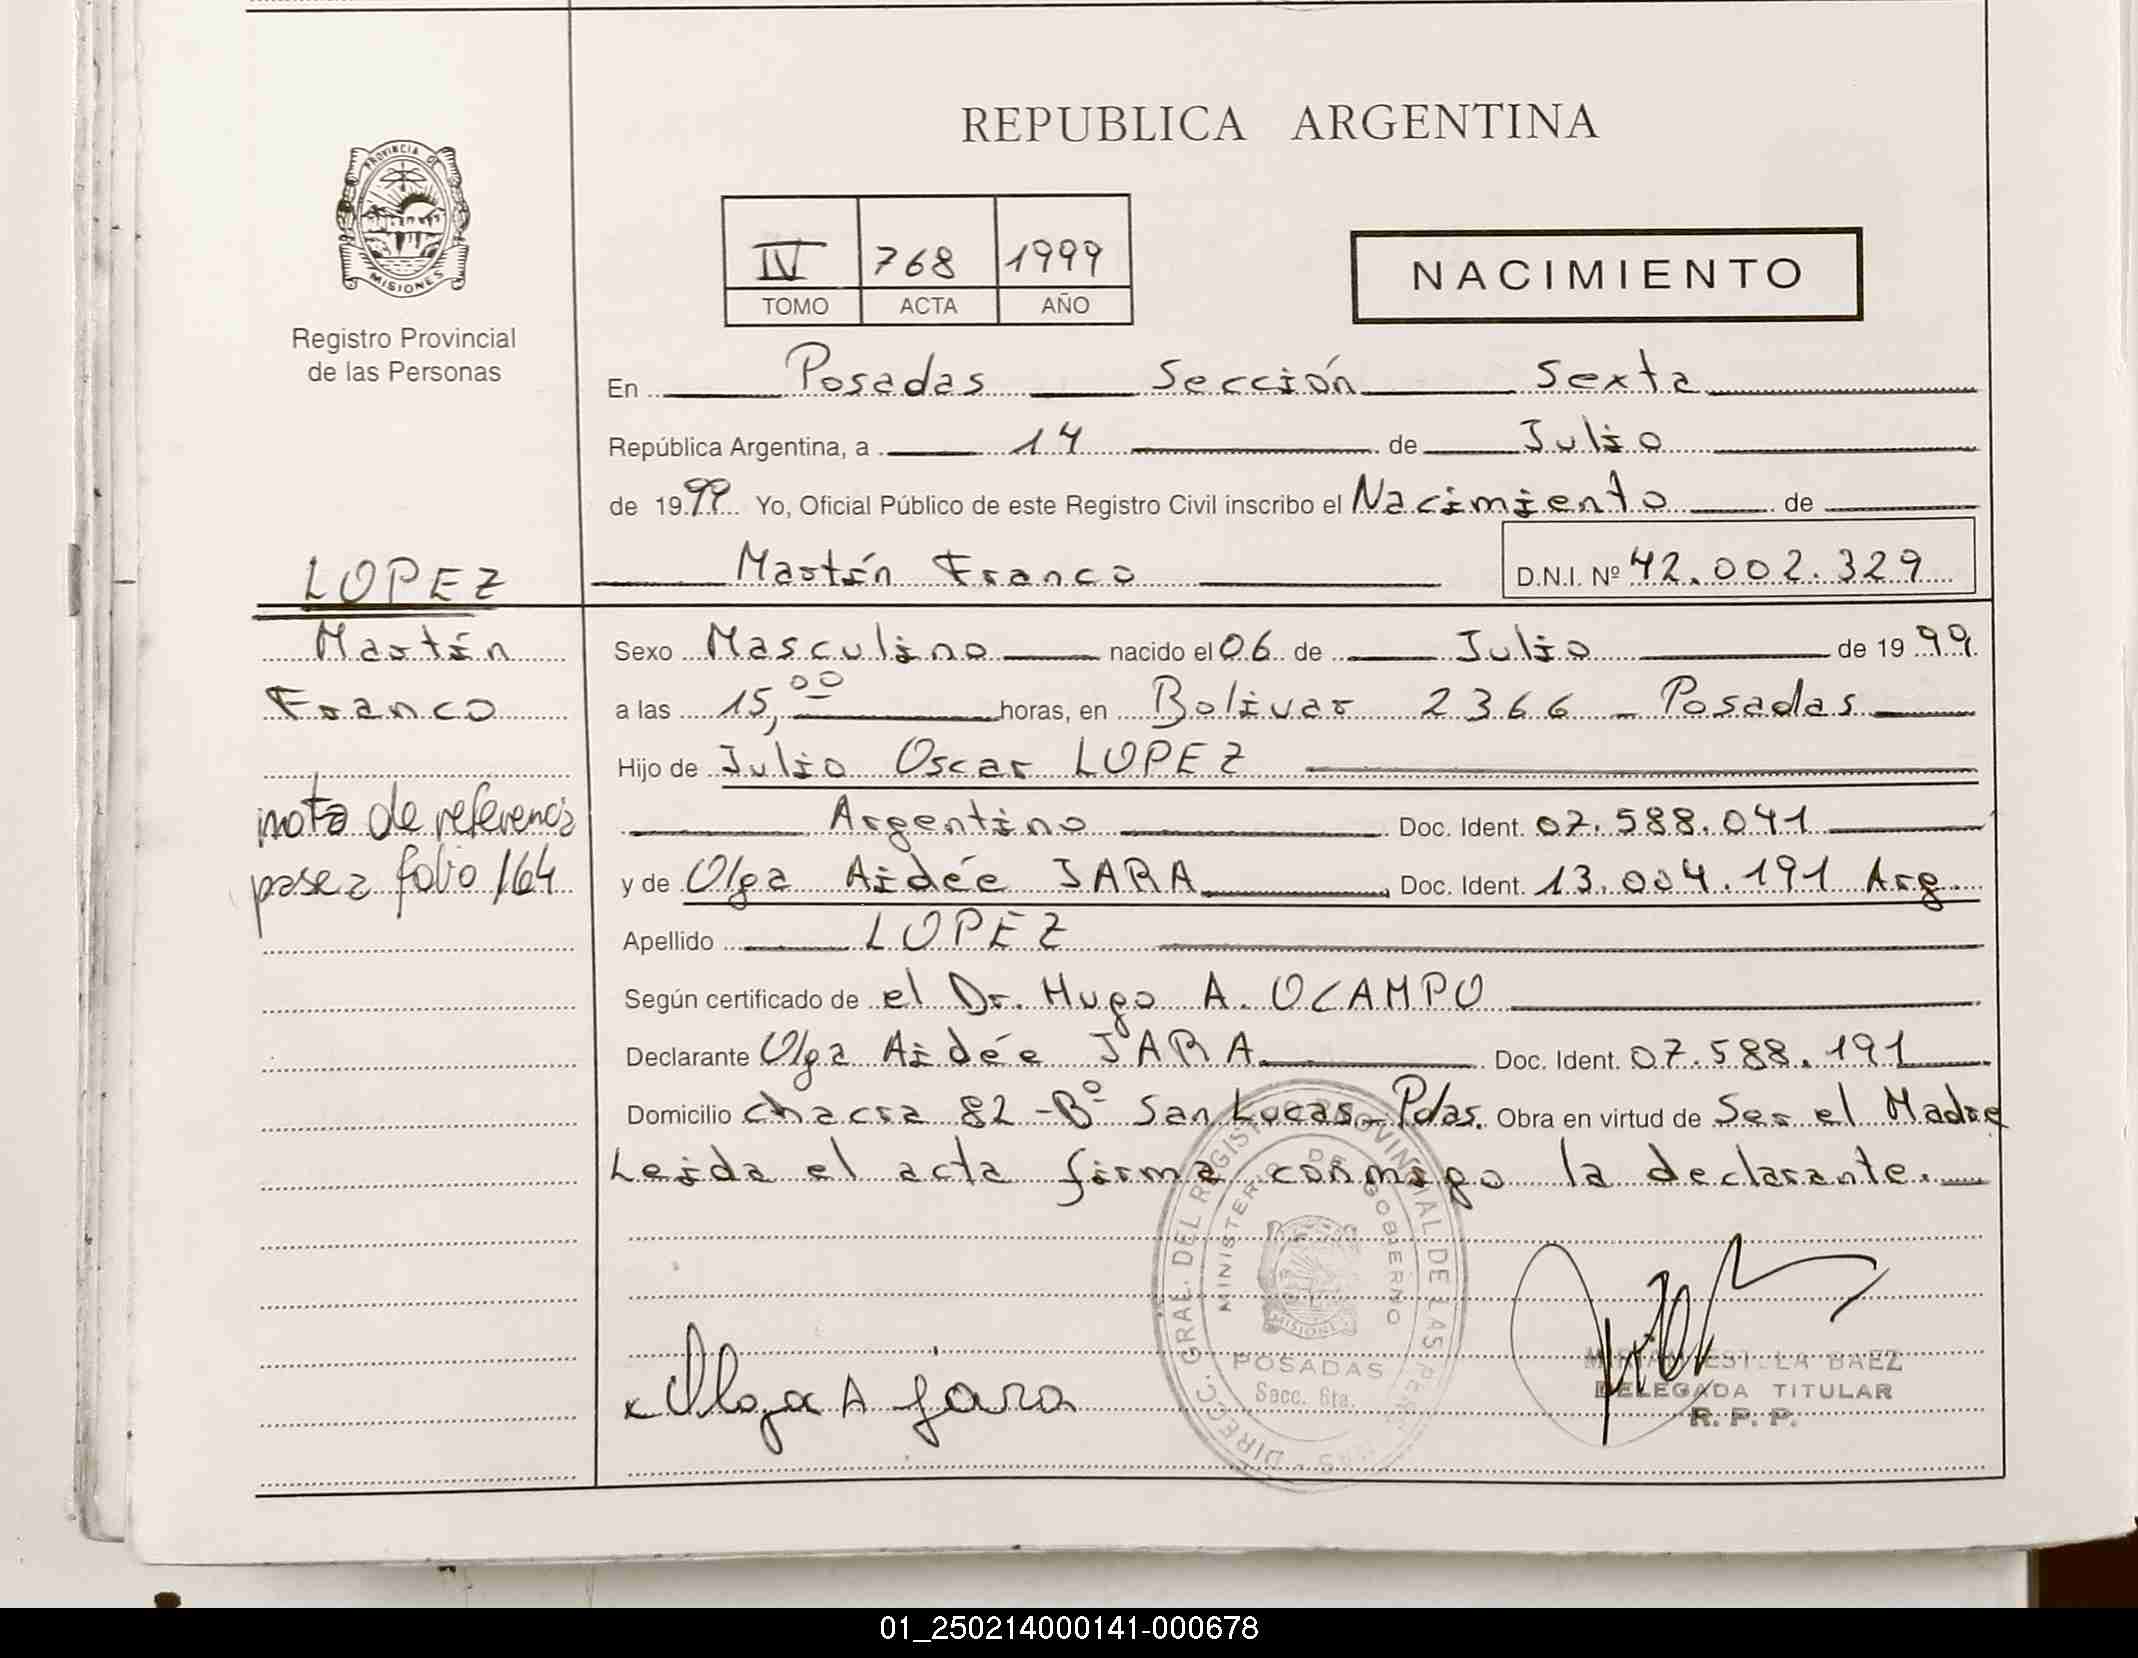 REPUBLICA ARGENTINA
PROVINCIA DE
MISIONES
Registro Provincial
de las Personas
IV 768 1999
TOMO ACTA AÑO
NACIMIENTO
En Posadas Sección Sexta
República Argentina, a 14 de Julio
de 1999 Yo, Oficial Público de este Registro Civil inscribo el Nacimiento de
Martín Franco D.N.I. Nº 42.002.329
LOPEZ
Martín
Franco
nota de referencia
pase a folio 164
Sexo Masculino nacido el 06 de Julio de 1999
a las 15,00 horas, en Bolivar 2366 - Posadas
Hijo de Julio Oscar LOPEZ
Argentino Doc. Ident. 07.588.041
y de Olga Aidée JARA Doc. Ident. 13.004.191 Arg.
Apellido LOPEZ
Según certificado de el Dr. Hugo A. OCAMPO
Declarante Olga Aidée JARA Doc. Ident. 07.588.191
Domicilio chacra 82 - Bº San Lucas - Pdas. Obra en virtud de Ser el Madre
Leida el acta firma conmigo la declarante.
DIRECC. GRAL. DEL REGISTRO PROVINCIAL DE LAS
MINISTERIO DE GOBIERNO
MISIONES
POSADAS
Secc. 6ta.
Olga A Jara
BAEZ
DELEGADA TITULAR
R. P. P.
01_250214000141-000678